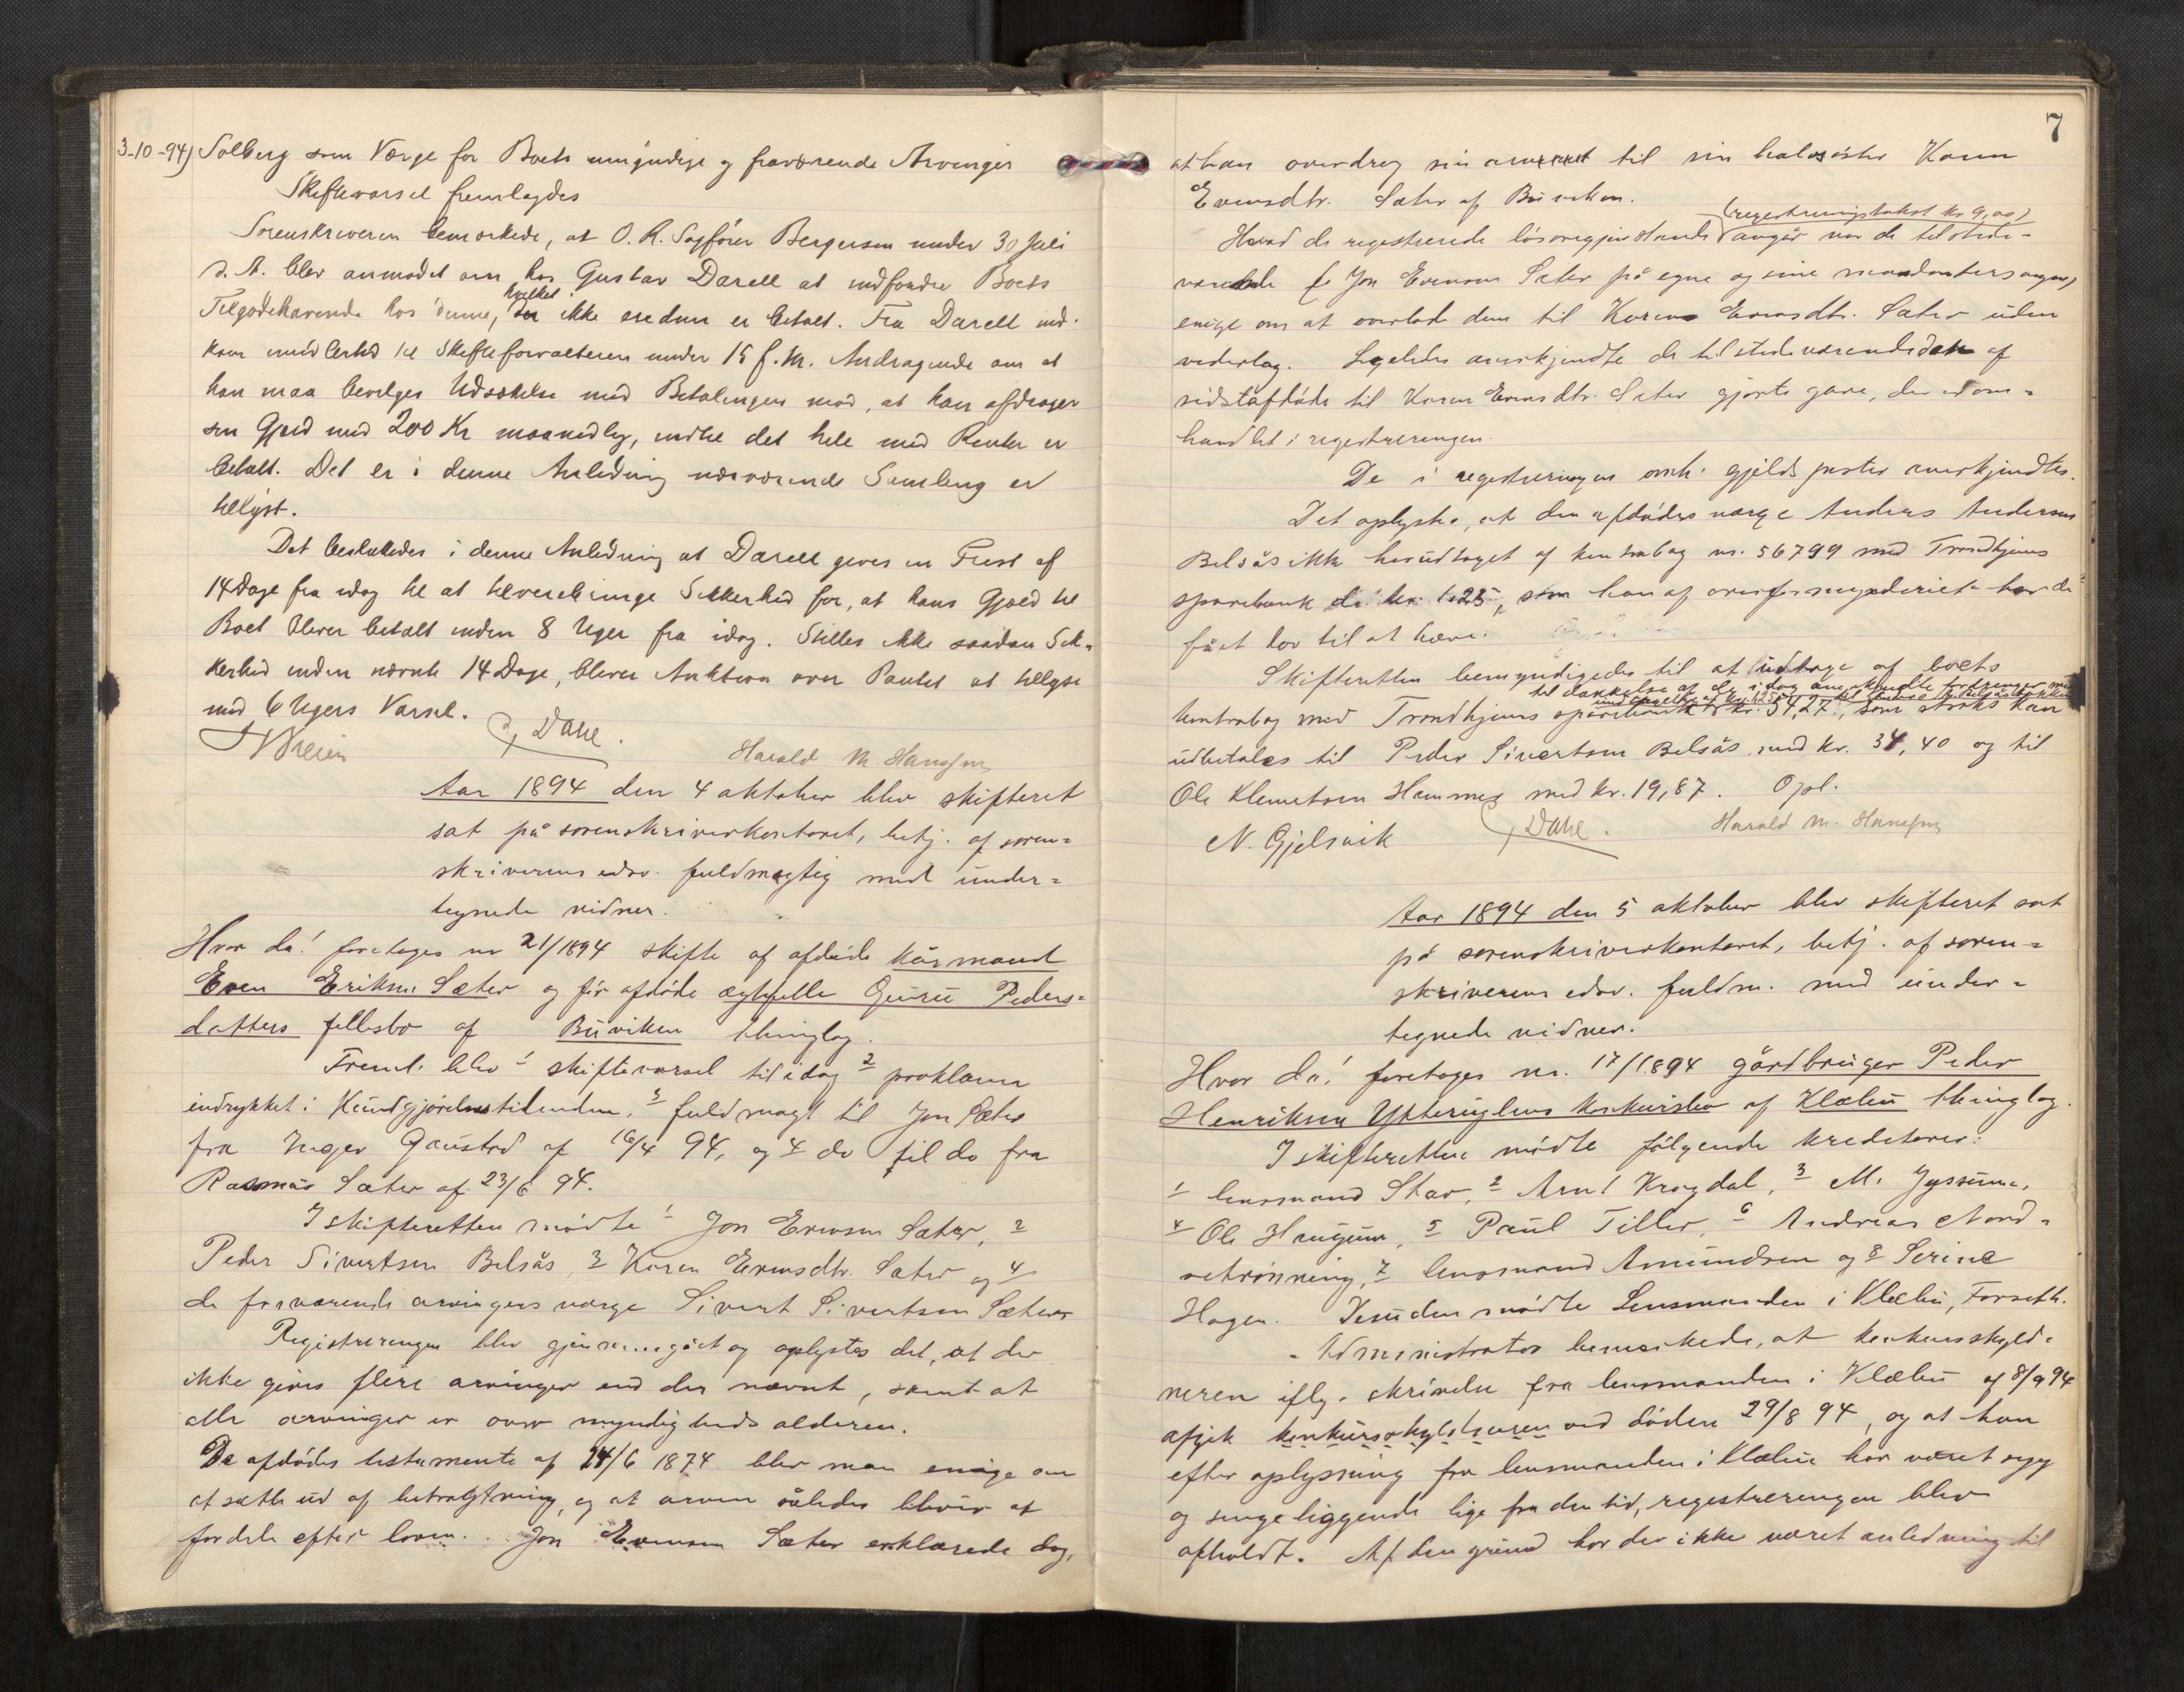 3-10-94) Solberg som Værge for Boets umyndige og fraværende Arvinger
Skiftevarsel fremlagdes
Sorenskriveren bemærkede, at O. R. Sagfører Bergersen under 30 Juli
d. A. blev anmodet om hos Gustav Darell at indfordre Boets
Tilgodehavende hos denne, hvilket ikke endnu er betalt. Fra Darell ind-
kom imidlertid til Skifteforvalteren under 15 f. M. Andragende om at
han maa bevilges Udsættelse med Betalingen mod, at han afdrager
sin Gjæld med 200 Kr maanedlig, indtil det hele med Renter er
betalt. Det er i denne Anledning nærværende Samling er
tillyst.
Det besluttedes i denne Anledning at Darell gives en Frist af
14 Dage fra idag til at tilveiebringe Sikkerhed for, at hans Gjæld til
Boet bliver betalt inden 8 Uger fra idag. Stilles ikke saadan Sik-
kerhed inden nævnte 14 Dage, bliver Auktion over Pantet at tillyse
med 6 Ugers Varsel.
Dahl.
Harald M. Hansen
Aar 1894 den 4 oktober blev skifteret
sat på sorenskriverkontoret, betj. af soren=
skriverens edsv. fuldmægtig med under=
tegnede vidner.
Hvor da! foretoges no 21/1894 skifte af afdøde kårmand
Even Eriksen Sæter og før afdøde ægtefelle Guru Peders=
datters fellesbo af Buviken thinglag.
Freml. blev 1 skiftevarsel til idag 2 proklama
indrykket i Kundgjørelsestidenden, 3 fuldmagt til Jon Sæter
fra Inger Gaustad af 16/4 94, og 4 do til do fra
Rasmus Sæter af 23/6 94.
I skifteretten mødte 1 Jon Evensen Sæter, 2
Peder Sivertsen Belsås 3 Karen Evensdtr. Sæter og 4
de fraværende arvingers værge Sivert Sivertsen Sæter
Registreringen blev gjennemgået og oplystes det, at der
ikke gives flere arvinger end der nævnt, samt at
alle arvinger er over myndighedsalderen.
De afdødes testamente af 24/6 1874 blev man enige om
at sætte ud af betragtning, og at arven således bliver at
fordele efter loven. Jon Evensen Sæter erklærede dog,
7
at han overdrog sin arv til sin halvsøster Karen
Evensdtr. Sæter af Buviken.
(registreringstakst kr 9,00)
Hvad de registrerede løsøregjenstande angår var de tilstede-
værende (Jon Evensen Sæter på egne og sine mandanters vegne)
enige om at overlade dem til Karen Evensdtr. Sæter uden
vederlag. Ligeledes anerkjendte de tilstedeværende den af
sidstafdøde til Karen Evensdtr. Sæter gjorte gave, der er om=
handlet i registreringen.
De i registreringen omh. gjeldsposter anerkjendtes.
Det oplystes, at den afdødes værge Anders Andersen
Belsås ikke har udtaget af kontrabog nr. 56799 med Trondhjems
sparebank de kr. 125, som han af overformynderiet havde
fået lov til at hæve.
Skifteretten bemyndigedes til at udtage af boets
til dækkelse af de idag anerkjendte fordringer
kontrabog med Trondhjems sparebank kr. 54,27, som straks kan
udbetales til Peder Sivertsen Belsås med kr. 34,40 og til
Ole Klemetsen Hammer med kr. 19,87. Opl.
N. Gjelsvik
Dahl.
Harald M. Hansen
Aar 1894 den 5 oktober blev skifteret sat
på sorenskriverkontoret, betj. af soren=
skriverens edsv. fuldm. med under=
tegnede vidner.
Hvor da! foretoges nr. 17/1894 gårdbruger Peder
Henriksen Ytteruglens konkursbo af Klæbu thinglag.
I skifteretten mødte følgende kreditorer:
1 lensmand Stav, 2 Arnt Krogdal, 3 M. Jyssum,
4 Ole Haugum, 5 Paul Tiller, 6 Andreas Nord=
setrønning, 7 lensmand Amundsen og 8 Serine
Hagen. Desuden mødte Lensmanden i Klæbu, Forseth.
Administrator bemærkede, at konkursskyld=
neren iflg. skrivelse fra lensmanden i Klæbu af 8/9 94
afgik konkursskyldneren ved døden 29/8 94, og at han
efter oplysning fra lensmanden i Klæbu har været syg
og sengeliggende lige fra den tid, registreringen blev
afholdt. Af den grund har der ikke været anledning til